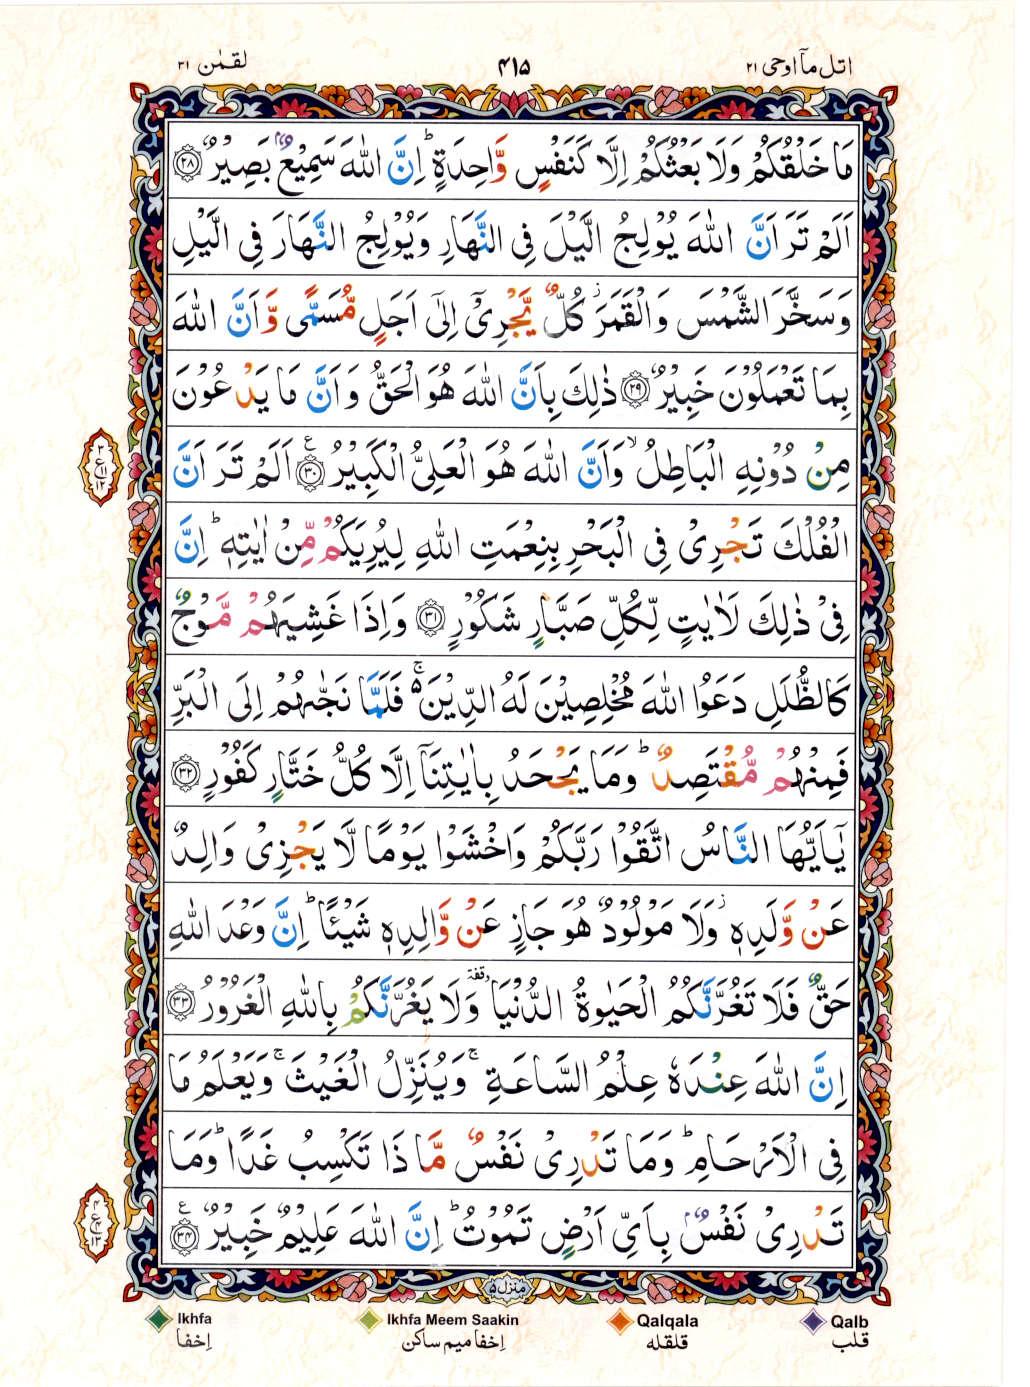 اتل مآ اوحی ۲۱
۴۱۵
لقمٰن ۳۱
مَا خَلْقُكُمْ وَلَا بَعْثُكُمْ اِلَّا كَنَفْسٍ وَّاحِدَةٍ ؕ اِنَّ اللّٰهَ سَمِيْعٌۢ بَصِيْرٌ ﴿۲۸﴾
اَلَمْ تَرَ اَنَّ اللّٰهَ يُوْلِجُ الَّيْلَ فِى النَّهَارِ وَيُوْلِجُ النَّهَارَ فِى الَّيْلِ
وَسَخَّرَ الشَّمْسَ وَالْقَمَرَ ؗ كُلٌّ يَّجْرِىْۤ اِلٰٓى اَجَلٍ مُّسَمًّى وَّاَنَّ اللّٰهَ
بِمَا تَعْمَلُوْنَ خَبِيْرٌ ﴿۲۹﴾ ذٰلِكَ بِاَنَّ اللّٰهَ هُوَ الْحَقُّ وَاَنَّ مَا يَدْعُوْنَ
مِنْ دُوْنِهِ الْبَاطِلُ ۙ وَاَنَّ اللّٰهَ هُوَ الْعَلِىُّ الْكَبِيْرُ ﴿۳۰﴾ ع اَلَمْ تَرَ اَنَّ
الْفُلْكَ تَجْرِىْ فِى الْبَحْرِ بِنِعْمَتِ اللّٰهِ لِيُرِيَكُمْ مِّنْ اٰيٰتِهٖ ؕ اِنَّ
فِىْ ذٰلِكَ لَاٰيٰتٍ لِّكُلِّ صَبَّارٍ شَكُوْرٍ ﴿۳۱﴾ وَاِذَا غَشِيَهُمْ مَّوْجٌ
كَالظُّلَلِ دَعَوُا اللّٰهَ مُخْلِصِيْنَ لَهُ الدِّيْنَ ۚ۬ فَلَمَّا نَجّٰىهُمْ اِلَى الْبَرِّ
فَمِنْهُمْ مُّقْتَصِدٌ ؕ وَمَا يَجْحَدُ بِاٰيٰتِنَاۤ اِلَّا كُلُّ خَتَّارٍ كَفُوْرٍ ﴿۳۲﴾
يٰۤاَيُّهَا النَّاسُ اتَّقُوْا رَبَّكُمْ وَاخْشَوْا يَوْمًا لَّا يَجْزِىْ وَالِدٌ
عَنْ وَّلَدِهٖ ؗ وَلَا مَوْلُوْدٌ هُوَ جَازٍ عَنْ وَّالِدِهٖ شَيْئًا ؕ اِنَّ وَعْدَ اللّٰهِ
حَقٌّ فَلَا تَغُرَّنَّكُمُ الْحَيٰوةُ الدُّنْيَا وقفۃ وَلَا يَغُرَّنَّكُمْ بِاللّٰهِ الْغَرُوْرُ ﴿۳۳﴾
اِنَّ اللّٰهَ عِنْدَهٗ عِلْمُ السَّاعَةِ ۚ وَيُنَزِّلُ الْغَيْثَ ۚ وَيَعْلَمُ مَا
فِى الْاَرْحَامِ ؕ وَمَا تَدْرِىْ نَفْسٌ مَّا ذَا تَكْسِبُ غَدًا ؕ وَمَا
تَدْرِىْ نَفْسٌۢ بِاَىِّ اَرْضٍ تَمُوْتُ ؕ اِنَّ اللّٰهَ عَلِيْمٌ خَبِيْرٌ ﴿۳۴﴾ ع
منزل ۵
Ikhfa
اِخفا
Ikhfa Meem Saakin
اِخفا میم ساکن
Qalqala
قلقلہ
Qalb
قلب